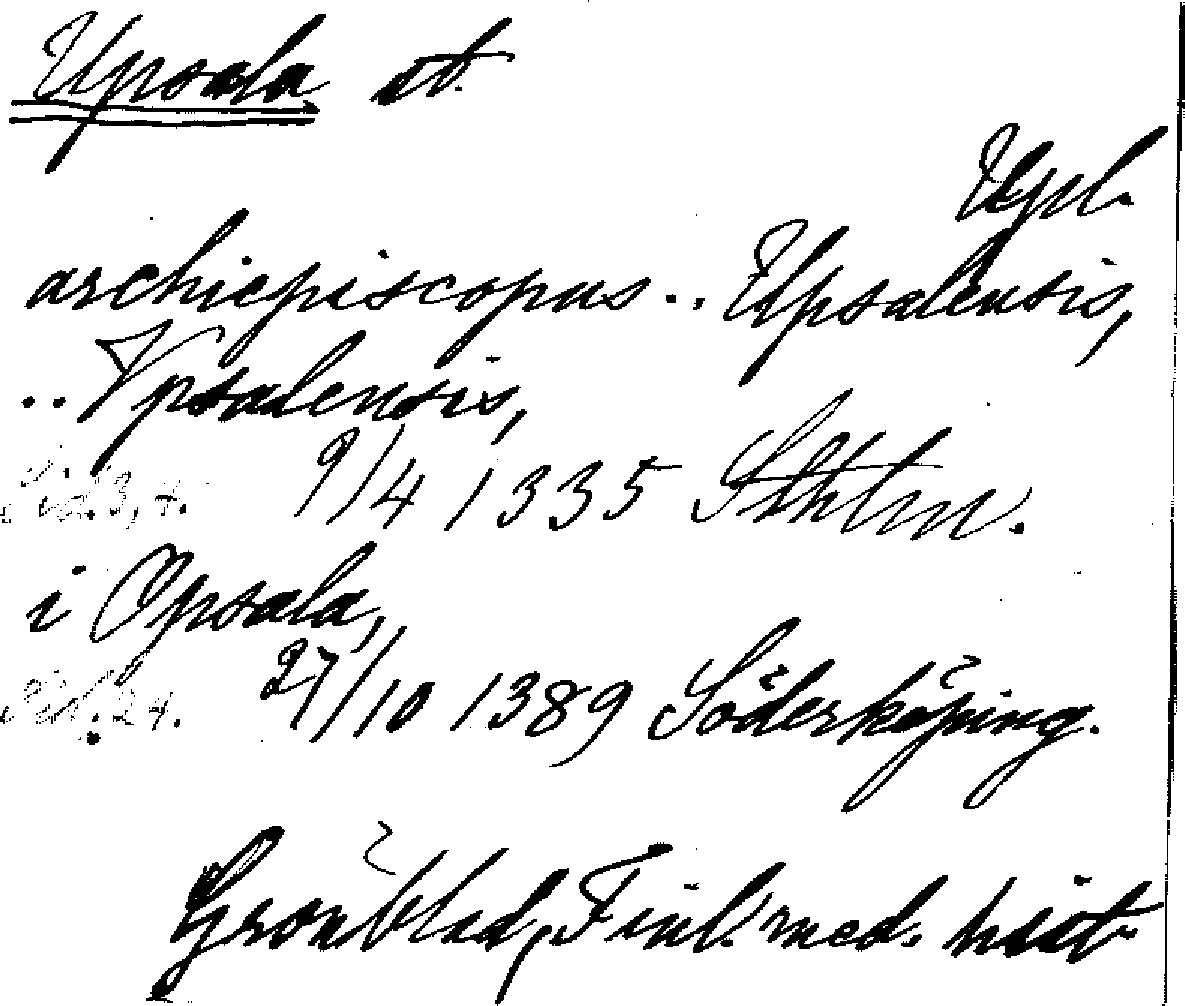 Upsala st.
Upl.
archiepiscopus .. Upsalensis,
.. Vpsalensis,
3,4. 9/4 1335 Sthlm.
i Opsala,
24. 27/10 1389 Söderköping.
Grönblad, Finl. med. hist.